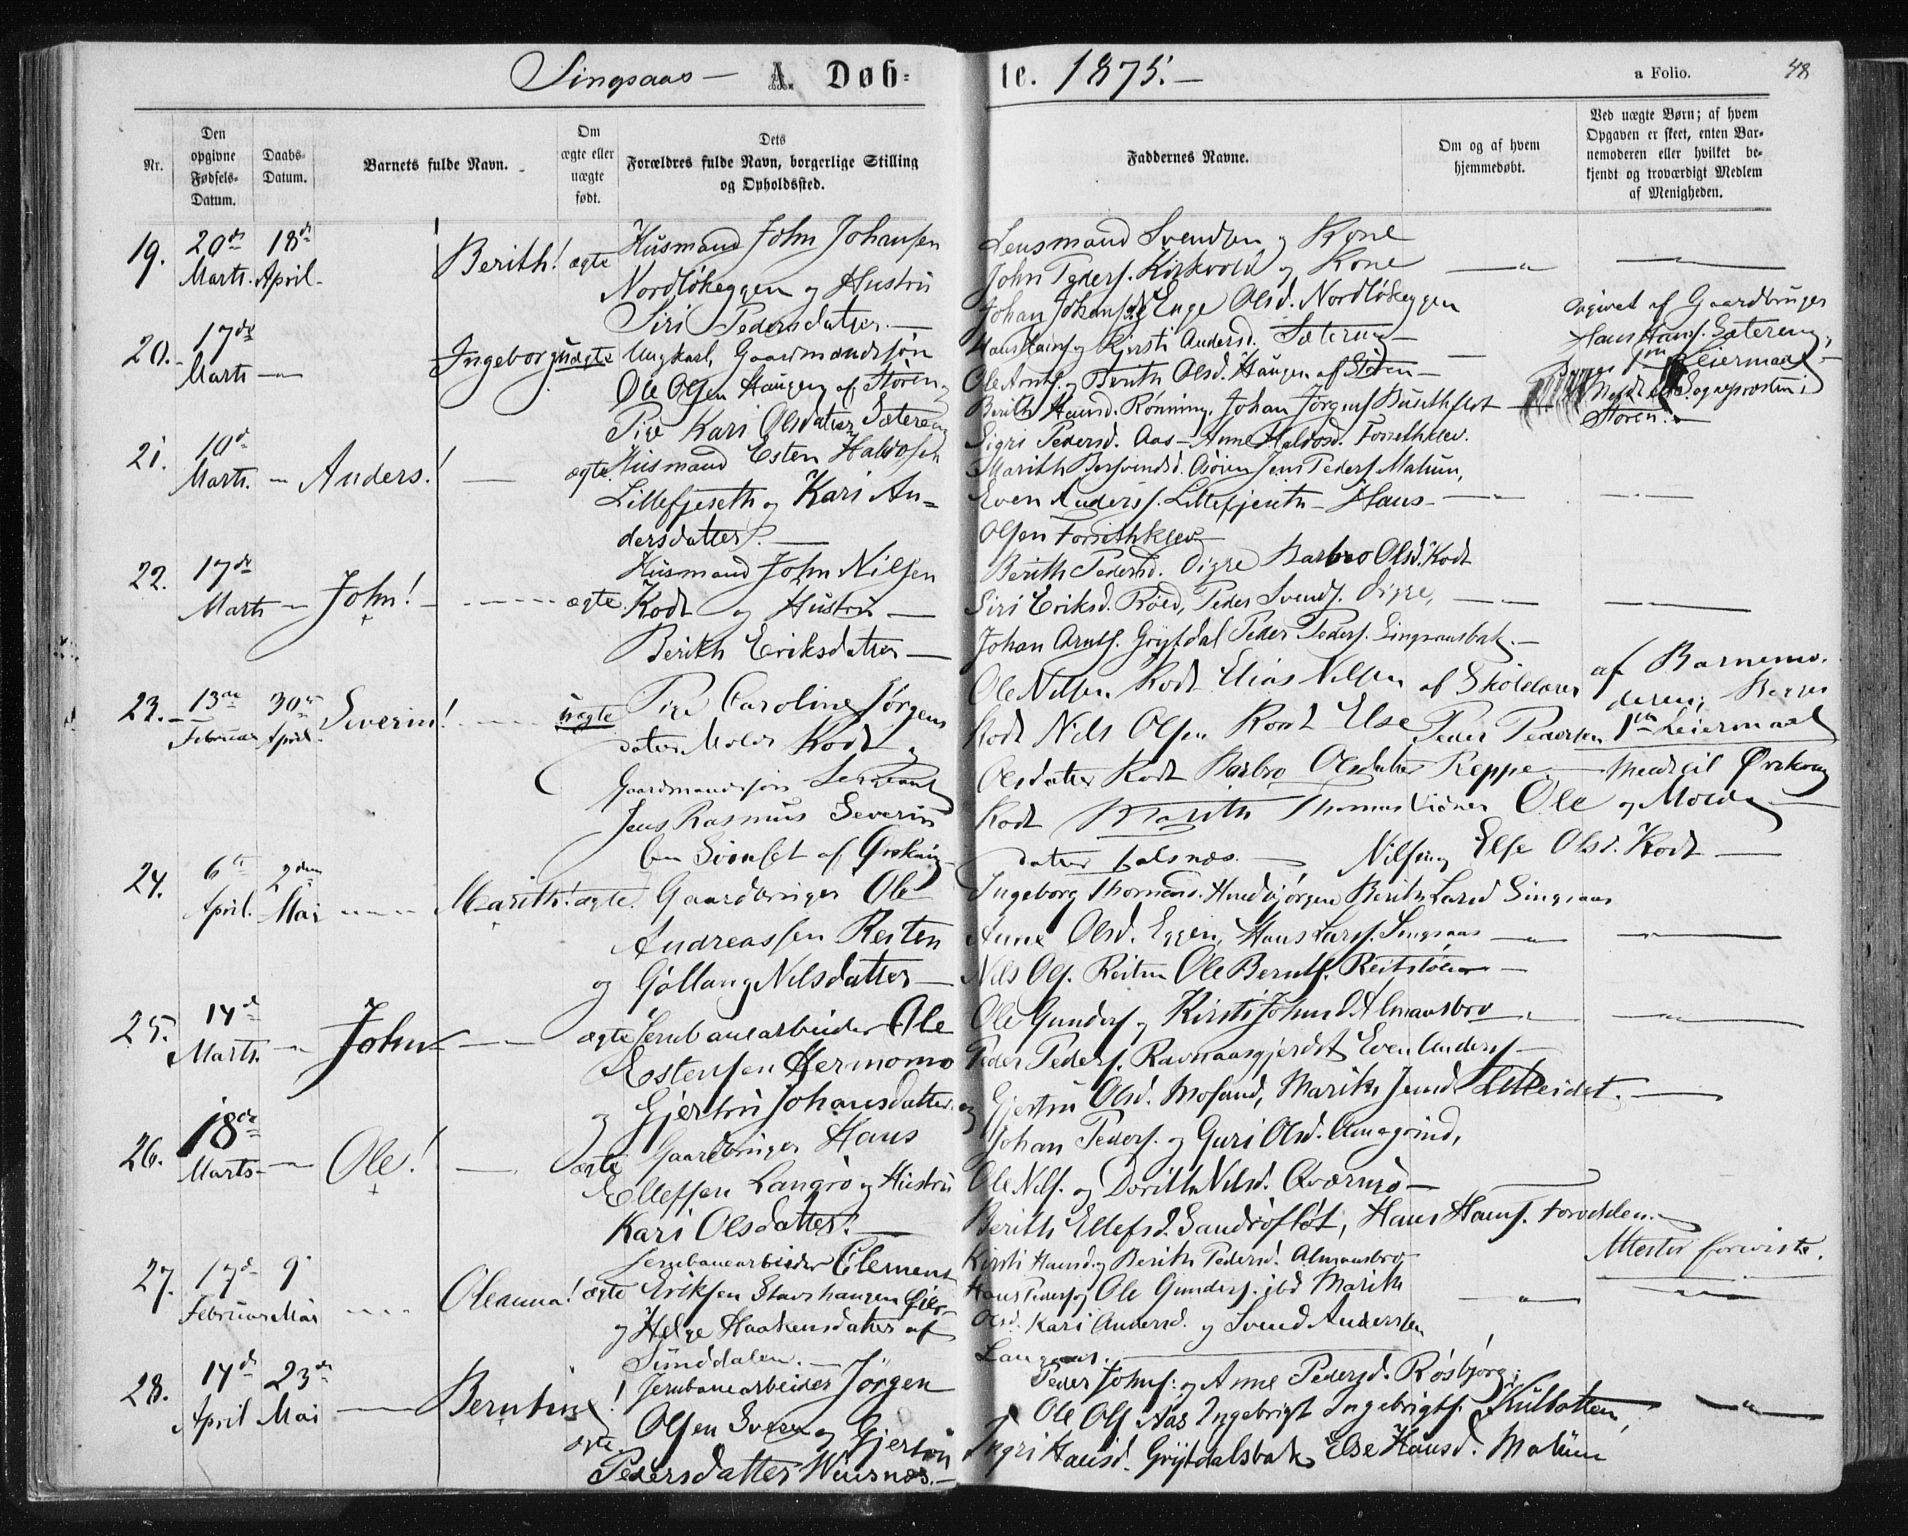 Singsaas — A. Døb-
te. 1875. —
a Folio.
48
Nr.
Den opgivne Fødsels-Datum.
Daabs-Datum.
Barnets fulde Navn.
Om ægte eller uægte født.
Dets Forældres fulde Navn, borgerlige Stilling og Opholdssted.
Faddernes Navne.
Om og af hvem hjemmedøbt.
Ved uægte Børn; af hvem Opgaven er skeet, enten Barnemoderen eller hvilket bekjendt og troværdigt Medlem af Menigheden.
19. 20de Marts. 18de April. Berith! ægte
Husmand John Johansen
Nordløkeggen og Hustru
Siri Pedersdatter. —
Lensmand Svendsen og Kone
John Peders. Kirkvold og Kone
Johan Johans. og Enge Olsd. Nordløkeggen
20. 17de Marts — Ingeborg! uægte
Ungkarl, Gaardmandssøn
Ole Olsen Haugen af Støren og
Pige Kari Olsdatter Sætereng
Hans Hans. og Kjersti Andersd. Sætereng
Ole Arnts. og Berith Olsd. Haugen af Støren —
Berith Hansd. Rønning. Johan Jørgens. Busethflot
angivet af Gaardbruger
Hans Hans. Sætereng,
Begges 1ste Leiermaal
Sognepræsten i
Støren. —
21. 10de Marts. — Anders! — ægte.
Husmand Esten Haldosen
Lillefjeseth og Kari An-
dersdatter. —
Sigri Pedersd. Aas — Anne Haldosd. Forsethklev.
Marith Bersvendsd. Jens Peders. Malum,
Even Anders. Lillefjeseth — Hans
Olsen Forsethklev
22. 17de Marts — John! — ægte.
Husmand John Nilsen
Kodt og Hustru —
Berith Eriksdatter —
Berith Pedersd. Digre Barbro Olsd. Kodt
Siri Eriksd. Røed, Peder Svends. Digre,
Johan Arnts. Grytdal Peder Peders. Singsaasbak. —
23. 13de Februar 30te April. Severin! — uægte
Pige Caroline Jørgens
datter Molds Kodt og
Gaardmandssøn Sergeant
Jens Rasmus Severin
sen af Ørskoug
Ole Nilsen Kodt Elias Nilsen af Skoldarer
Kodt Nils Olsen Kodt Else Peder Pedersen
Olsdatter Kodt Barbro Olsdatter Reppe. —
Kodt Marith Thomas Ole og
datter Folsnæs. — Nilsen og Else Olsd. Kodt —
af Barnemo-
deren; Begges
1ste Leiermaal
Meldt til Ørskoug
og Molde
24. 6te April. 2den Mai Marith! ægte.
Gaardbruger Ole
Andreassen Reiten
og Gollaug Nilsdatter —
Ingeborg Thomasd. Berith Larsd Singsaas
Anne Olsd. Eggen, Hans Lars. Singsaas —
Nils Ols. Reiten Ole Bernts. Reitstøen —
25. 14de Marts. — John — ægte
Jernbanearbeider Ole
Estensen Hermomo
og Gjertru Johansdatter.
Ole Gunders. og Kirsti Johnsd Almaasbro
Peder Peders. Ravnaasgjerdet Even Anders. —
og Gjertru Olsd. Mosand, Marith Jensd. Litleeidet. —
26. 18de Marts — Ole! — ægte
Gaardbruger Hans
Ellefsen Langrø og Hustru
Kari Olsdatter! —
Johan Peders. og Guri Olsd. Aunegrind,
Ole Nils. og Dorith Nilsd. Qværnø —
Berith Ellefsd. Sandrøflot, Hans Hans. Forodden. —
Attester foreviste.
27. 17de Februar 9de Mai Oleanna! ægte
Jernbanearbeider Clemens
Eriksen Stavshaugen
og Helge Haakensdatter af
Sunddalen. —
Kirsti Hansd. og Berith Pedersd. Almaasbro
Hans Peders. og Ole Gunders. ibd Marith
Olsd. Kari Andersd. og Svend Andersen
28. 14de April 23de Mai — Berntine! ægte
Jernbanearbeider Jørgen
Olsen Sveen og Gjertru
Pedersdatter Winsnæs. —
Peder Johns. og Anne Pedersd. Røsbjørg;
Ole Ols Aas Ingebrigt Ingebrigts. Kulbotten,
Ingri Hansd. Grytdalsbak, Else Hansd. Malum